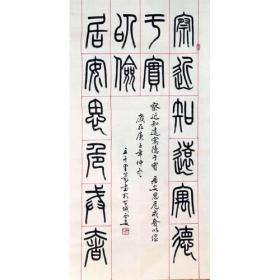 察近知遠寓德
于實
以儉
居安思危戒奢
察近知遠寓德于實 居安思危戒奢以儉
歲在庚子年仲冬